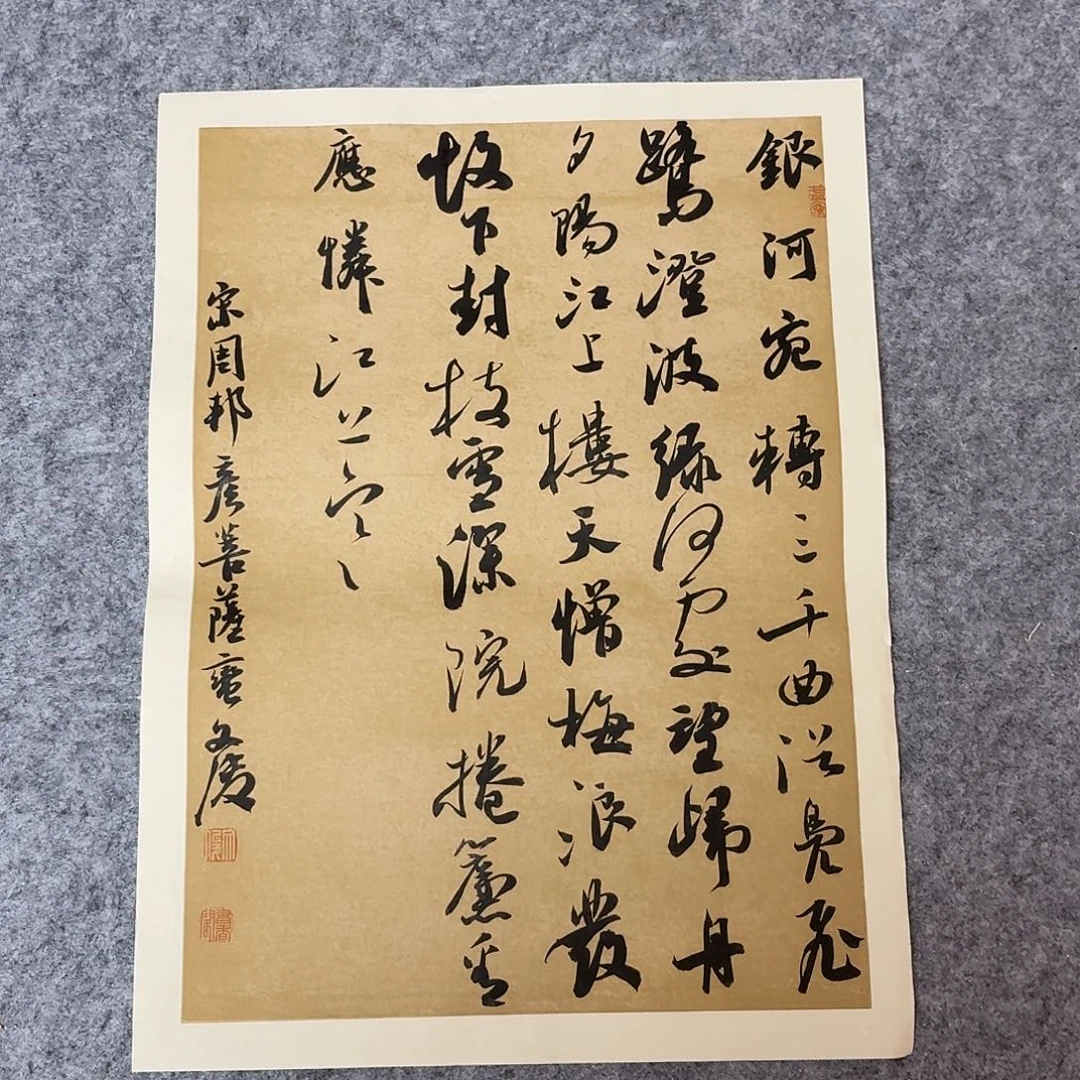 銀河宛轉三千曲浴鳧飛
鷺澄波綠何處望歸舟
夕陽江上樓天憎梅浪發
故下封枝雪深院捲簾看
應憐江上寒
宋周邦彥菩薩蠻